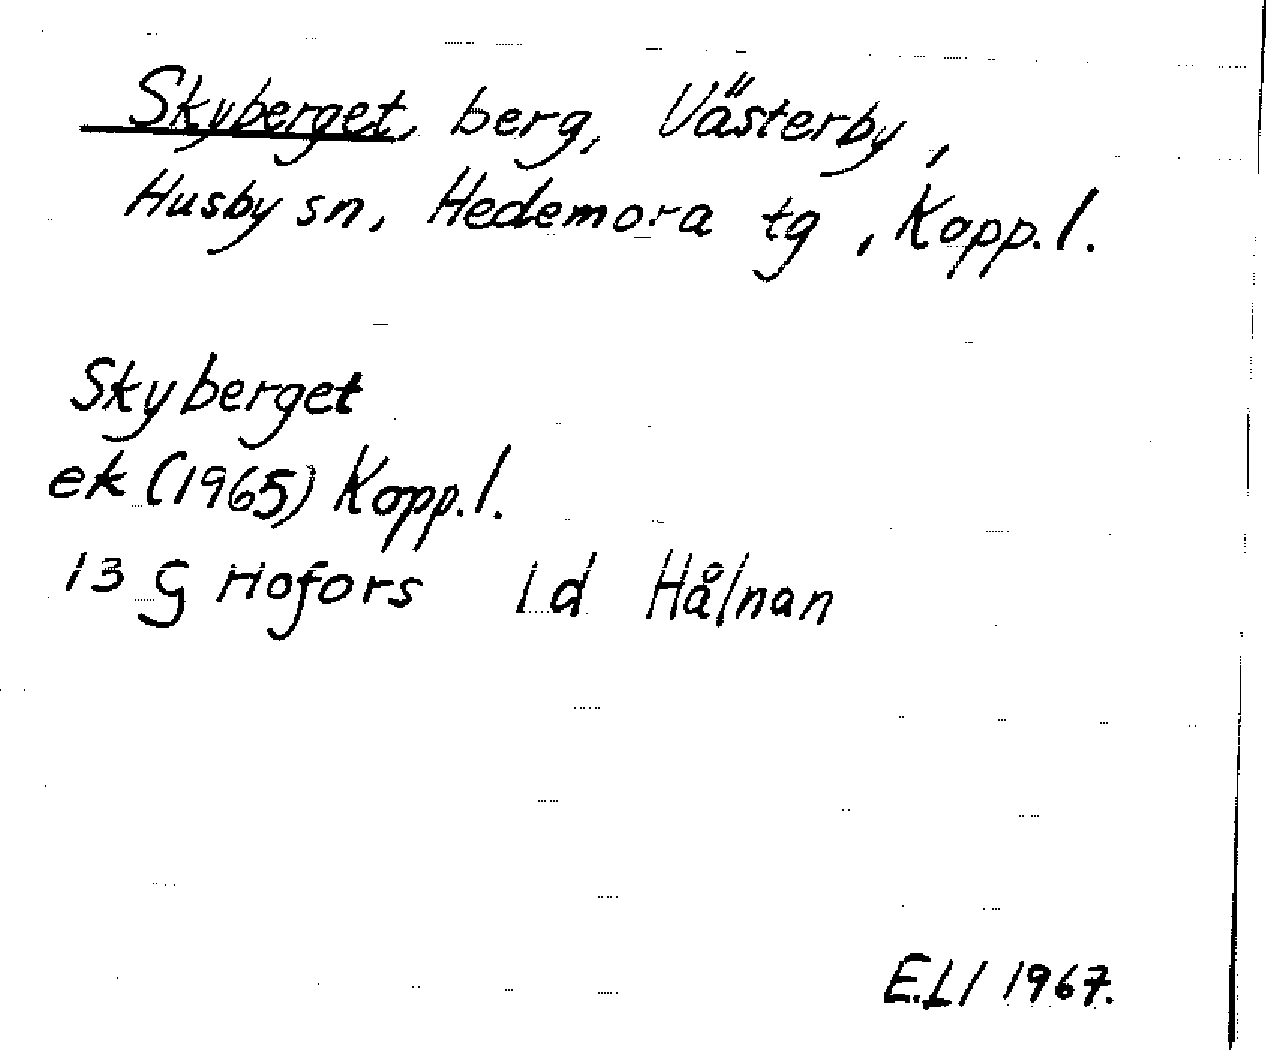 Skyberget, berg, Västerby,
Husby sn, Hedemora tg, Kopp.l.
Skyberget
ek (1965) Kopp.l.
13 G Hofors 1d Hålnan
E.Ll 1967.